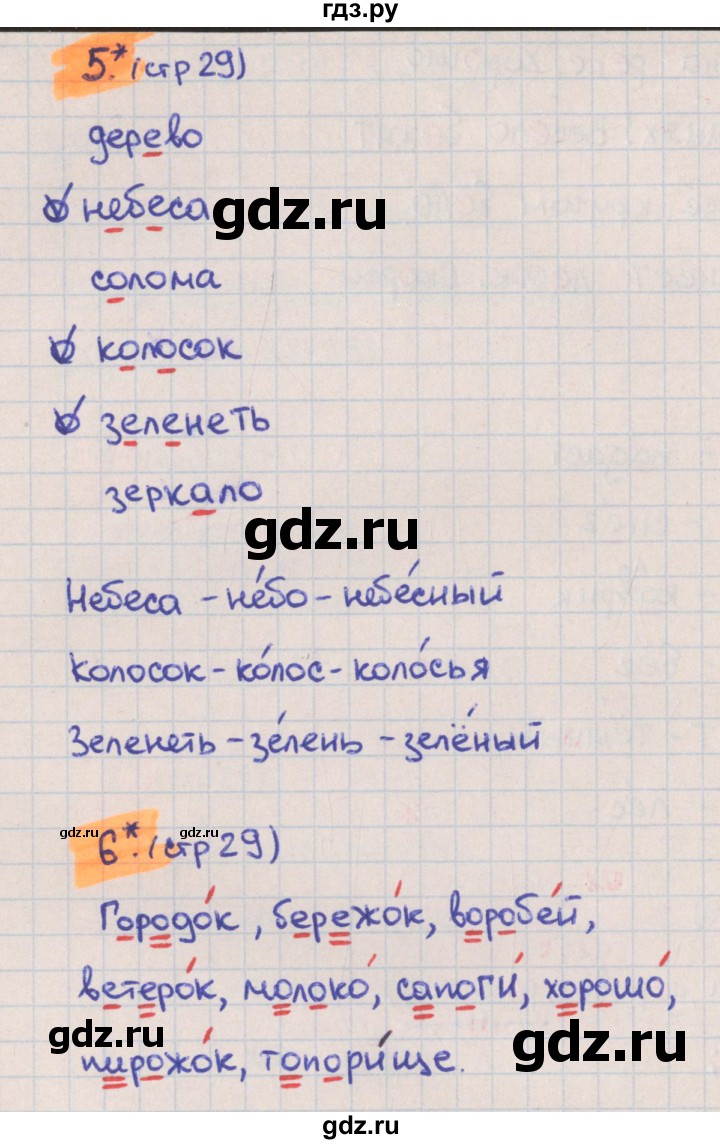 гдз.ру
5.* (стр 29)
дерево
небеса
gdz.ru
солома
колосок
зеленеть
зеркало
gdz.ru
Небеса - не́бо - небе́сный
Колосок - ко́лос - коло́сья
Зеленеть - зе́лень - зелё́ный
gdz.ru
gdz.ru
6*. (стр 29)
Городо́к, бережо́к, воробе́й,
ветеро́к, молоко́, сапоги́, хорошо́,
gdz.ru
gdz.ru
пирожо́к, топори́ще.
gdz.ru